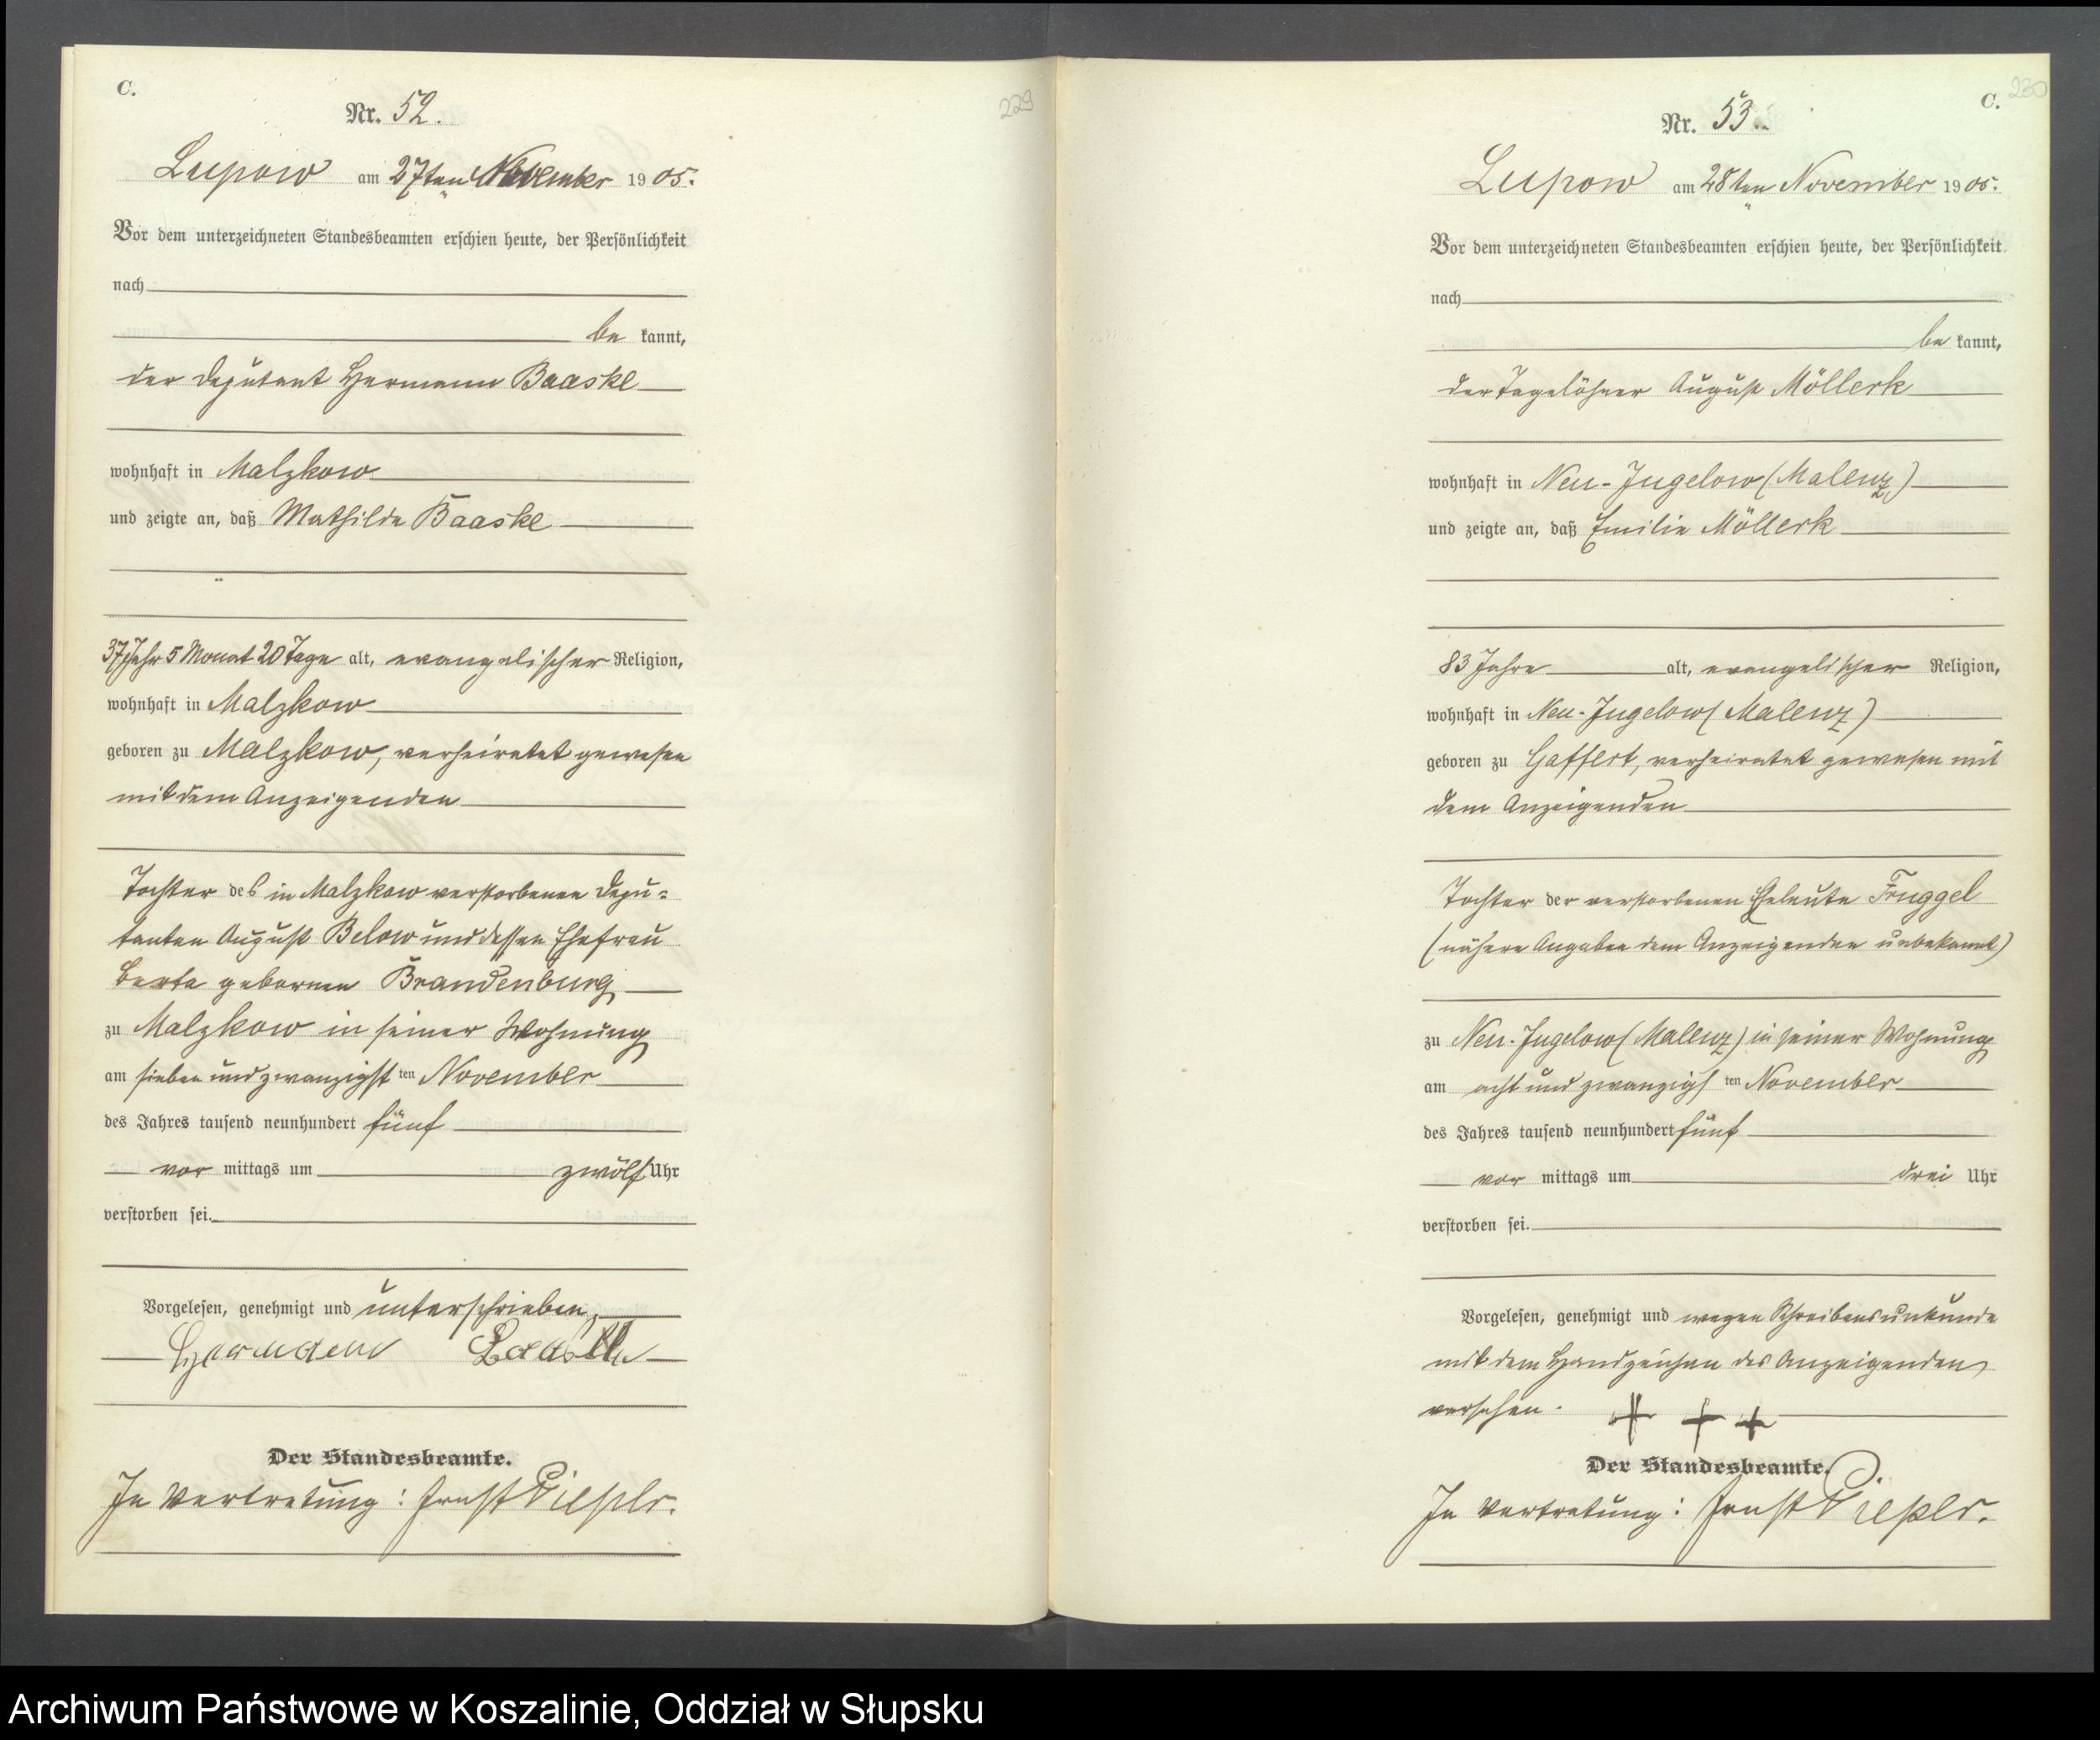 C.
229
Nr. 52.
Lupow am 27ten November 1905.
Vor dem unterzeichneten Standesbeamten erschien heute, der Persönlichkeit
nach
be kannt,
der Deputant Hermann Baaske
wohnhaft in Malzkow
und zeigte an, daß Mathilde Baaske
37 Jahr 5 Monat 20 Tage alt, evangelischer Religion,
wohnhaft in Malzkow
geboren zu Malzkow, verheiratet gewesen
mit dem Anzeigenden
Tochter des in Malzkow verstorbenen Depu-
tanten August Below und dessen Ehefrau
Berta geborenen Brandenburg
zu Malzkow in seiner Wohnung
am sieben und zwanzigst ten November
des Jahres tausend neunhundert fünf
vor mittags um zwölf Uhr
verstorben sei.
Vorgelesen, genehmigt und unterschrieben,
Hermann Baaske
Der Standesbeamte.
In Vertretung: Ernst Piepler.
C.
230
Nr. 53.
Lupow am 28ten November 1905.
Vor dem unterzeichneten Standesbeamten erschien heute, der Persönlichkeit
nach
be kannt,
der Tagelöhner August Möllerk
wohnhaft in Neu-Jugelow (Malenz)
und zeigte an, daß Emilie Möllerk
83 Jahre alt, evangelischer Religion,
wohnhaft in Neu-Jugelow (Malenz)
geboren zu Gaffert, verheiratet gewesen mit
dem Anzeigenden
Tochter der verstorbenen Eheleute Truggel
(nähere Angaben dem Anzeigenden unbekannt)
zu Neu-Jugelow (Malenz) in seiner Wohnung
am acht und zwanzigs ten November
des Jahres tausend neunhundert fünf
vor mittags um drei Uhr
verstorben sei.
Vorgelesen, genehmigt und wegen Schreibensunkunde
mit dem Handzeichen des Anzeigenden
versehen. + + +
Der Standesbeamte.
In Vertretung: Ernst Piepler.
Archiwum Państwowe w Koszalinie, Oddział w Słupsku